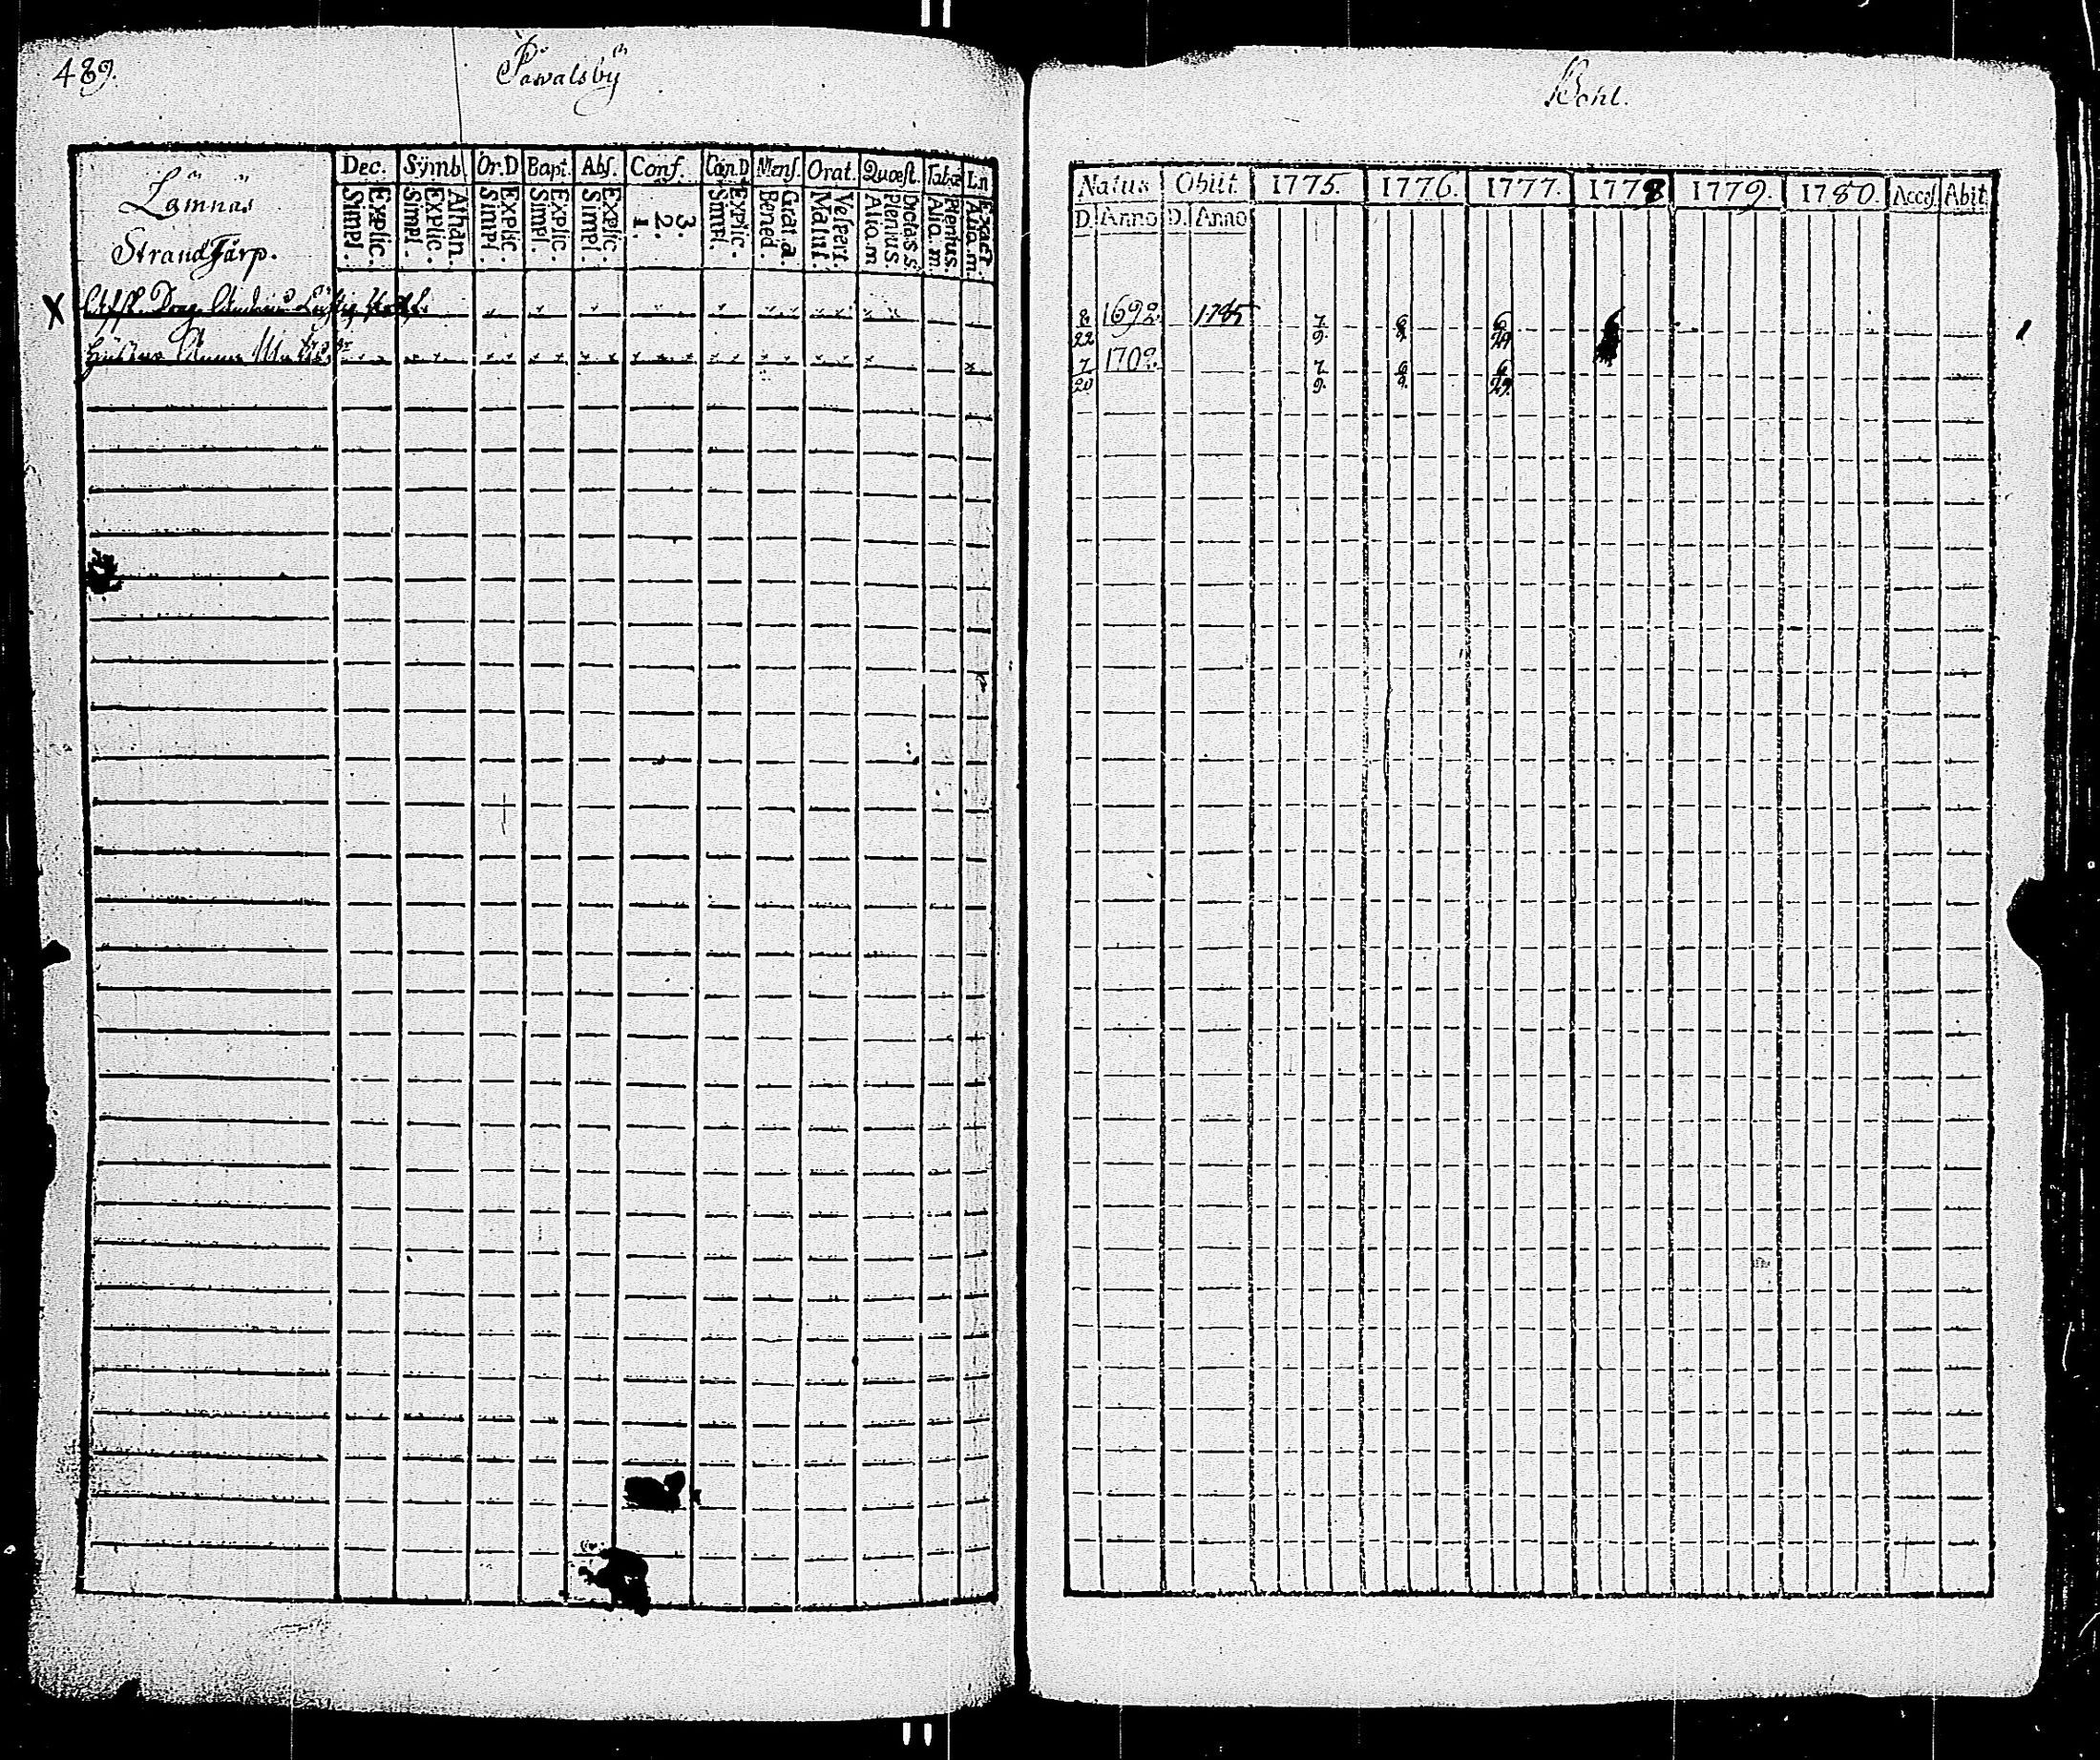 489.
Pawalsby
Lämnäs
StrandTårp.
Dec. Symb. Or.D Bapt. Abs. Conf. Can.D Mens. Orat. Quæst. Tabæ Ln
Simpl. Explic. Simpl. Explic. Athan. Simpl. Explic. Simpl. Explic. Simpl. Explic. 1. 2. 3. Simpl. Explic. Bened. Grat.a. Matut. Vespert. Alio.m Plenius. Dicta.s.s. Alio.m. Plenius. Alio.m. Exact.
X
Anna
Bohl.
Natus Obiit. 1775. 1776. 1777. 1778 1779. 1780. Acces. Abit
D. Anno D. Anno
8 1692. 1785 7 6 6
22 9. 9. 29
7 1702. 7 6 6
20 9. 9. 29.